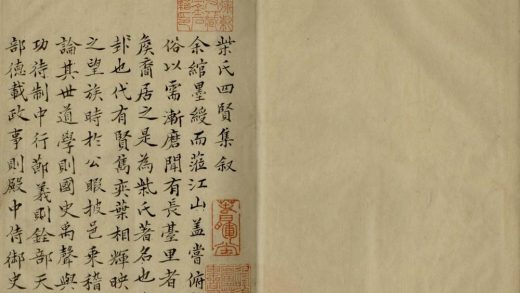 柴氏四賢集叙
余綰墨綬而蒞江山蓋嘗俯
俗以需漸磨聞有長臺里者
矦裔居之是為柴氏著名也
也代有賢雋奕葉相輝映
之望族時於公暇披邑乗稽
論其世道學則國史禹聲與
功待制中行節義則銓部天
部德載政事則殿中侍御史